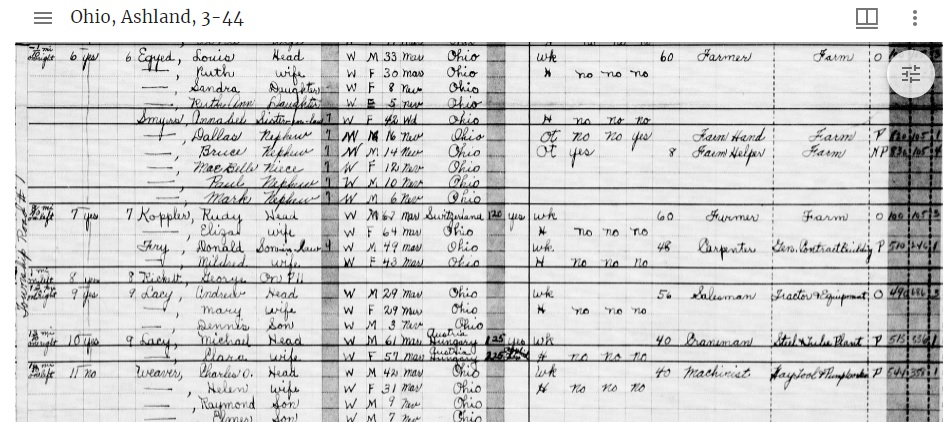 Ohio, Ashland, 3-44
6 yes 6 Egyed, Louis Head W M 33 mar Ohio wk 60 Farmer Farm O
—, Ruth wife W F 30 mar Ohio H no no no
—, Sandra Daughter W F 8 nev Ohio
—, Ruth Ann Daughter W F 5 nev Ohio
Smyers, Annabel Sister-in-law 7 W F 42 Wd Ohio H no no no
—, Dallas Nephew 7 W M 16 nev Ohio Ot no no yes Farm Hand Farm P
—, Bruce Nephew 7 W M 14 nev Ohio Ot yes 8 Farm Helper Farm NP
—, Niece 7 W F 12 nev Ohio
—, Paul Nephew 7 W M 10 nev Ohio
—, Mark Nephew 7 W M 6 nev Ohio
left 7 yes 7 Koppler, Rudy Head W M mar Switzerland 120 yes wk 60 Farmer Farm O
—, Eliza wife W F 64 mar Ohio H no no no
Fry, Donald Son-in-law 4 W M 49 mar Ohio wk 48 Carpenter Gen. Contract Building P
—, Mildred wife W F 43 mar Ohio H no no no
8 yes 8 George
9 yes 9 Lacy, Andrew Head W M 29 mar Ohio wk 56 Salesman Tractor & Equipment O
—, Mary wife W F 29 mar Ohio H no no no
—, Dennis Son W M 3 nev Ohio
10 yes 9 Lacy, Michael Head W M 61 mar Austria Hungary 125 yes wk 40 Craneman Steel & Tube Plant P
—, Clara wife W F 57 mar Austria Hungary H no no no
11 no Weaver, Charles O. Head W M 42 mar Ohio wk 40 Machinist P
—, Helen wife W F 31 mar Ohio H no no no
—, Raymond Son W M 9 nev Ohio
—, Elmer Son W M 7 nev Ohio